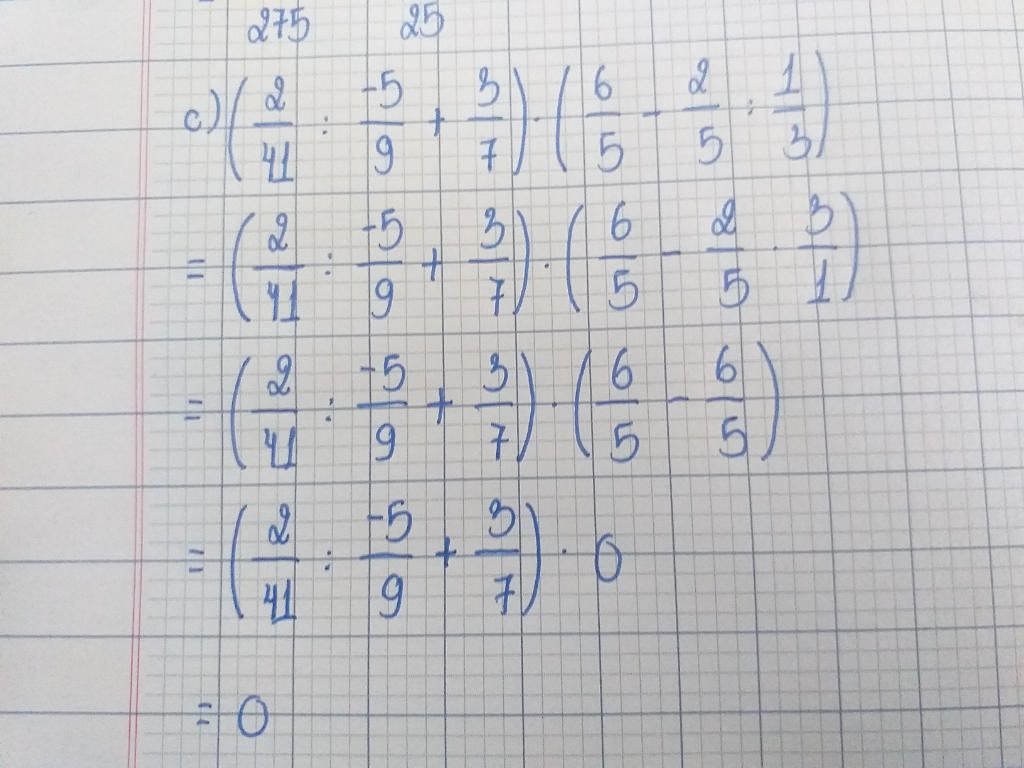 275 25
c) (2/41 : -5/9 + 3/7) · (6/5 - 2/5 : 1/3)
= (2/41 : -5/9 + 3/7) · (6/5 - 2/5 · 3/1)
= (2/41 : -5/9 + 3/7) · (6/5 - 6/5)
= (2/41 : -5/9 + 3/7) · 0
= 0